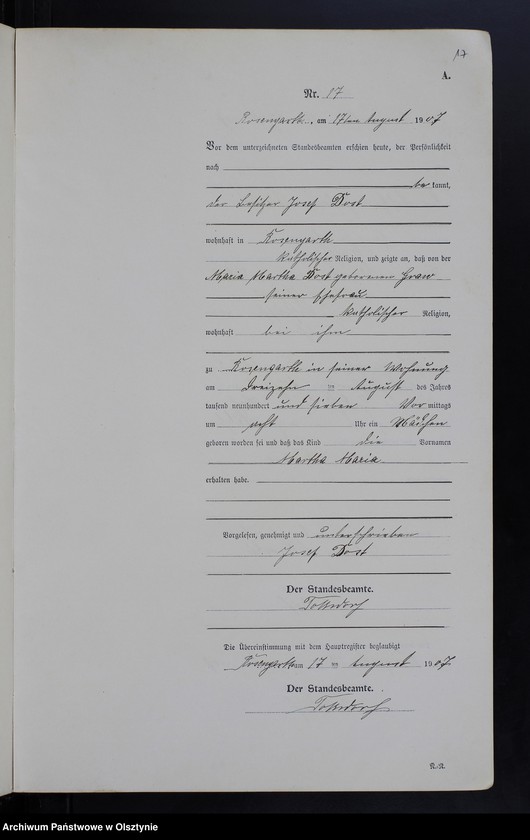 17
A.
Nr. 17
Rosengarth, am 17ten August 1907
Vor dem unterzeichneten Standesbeamten erschien heute, der Persönlichkeit
nach
be kannt,
der Besitzer Josef Dost
wohnhaft in Rosengarth
katholischer Religion, und zeigte an, daß von der
Maria Martha Dost geborenen Graw
seiner Ehefrau
katholischer Religion,
wohnhaft bei ihm
zu Rosengarth in seiner Wohnung
am dreizehn ten August des Jahres
tausend neunhundert und sieben Vor mittags
um acht Uhr ein Mädchen
geboren worden sei und daß das Kind die Vornamen
Martha Maria
erhalten habe.
Vorgelesen, genehmigt und unterschrieben
Josef Dost
Der Standesbeamte.
Die Übereinstimmung mit dem Hauptregister beglaubigt
Rosengarth am 17 ten August 1907
Der Standesbeamte.
Archiwum Państwowe w Olsztynie